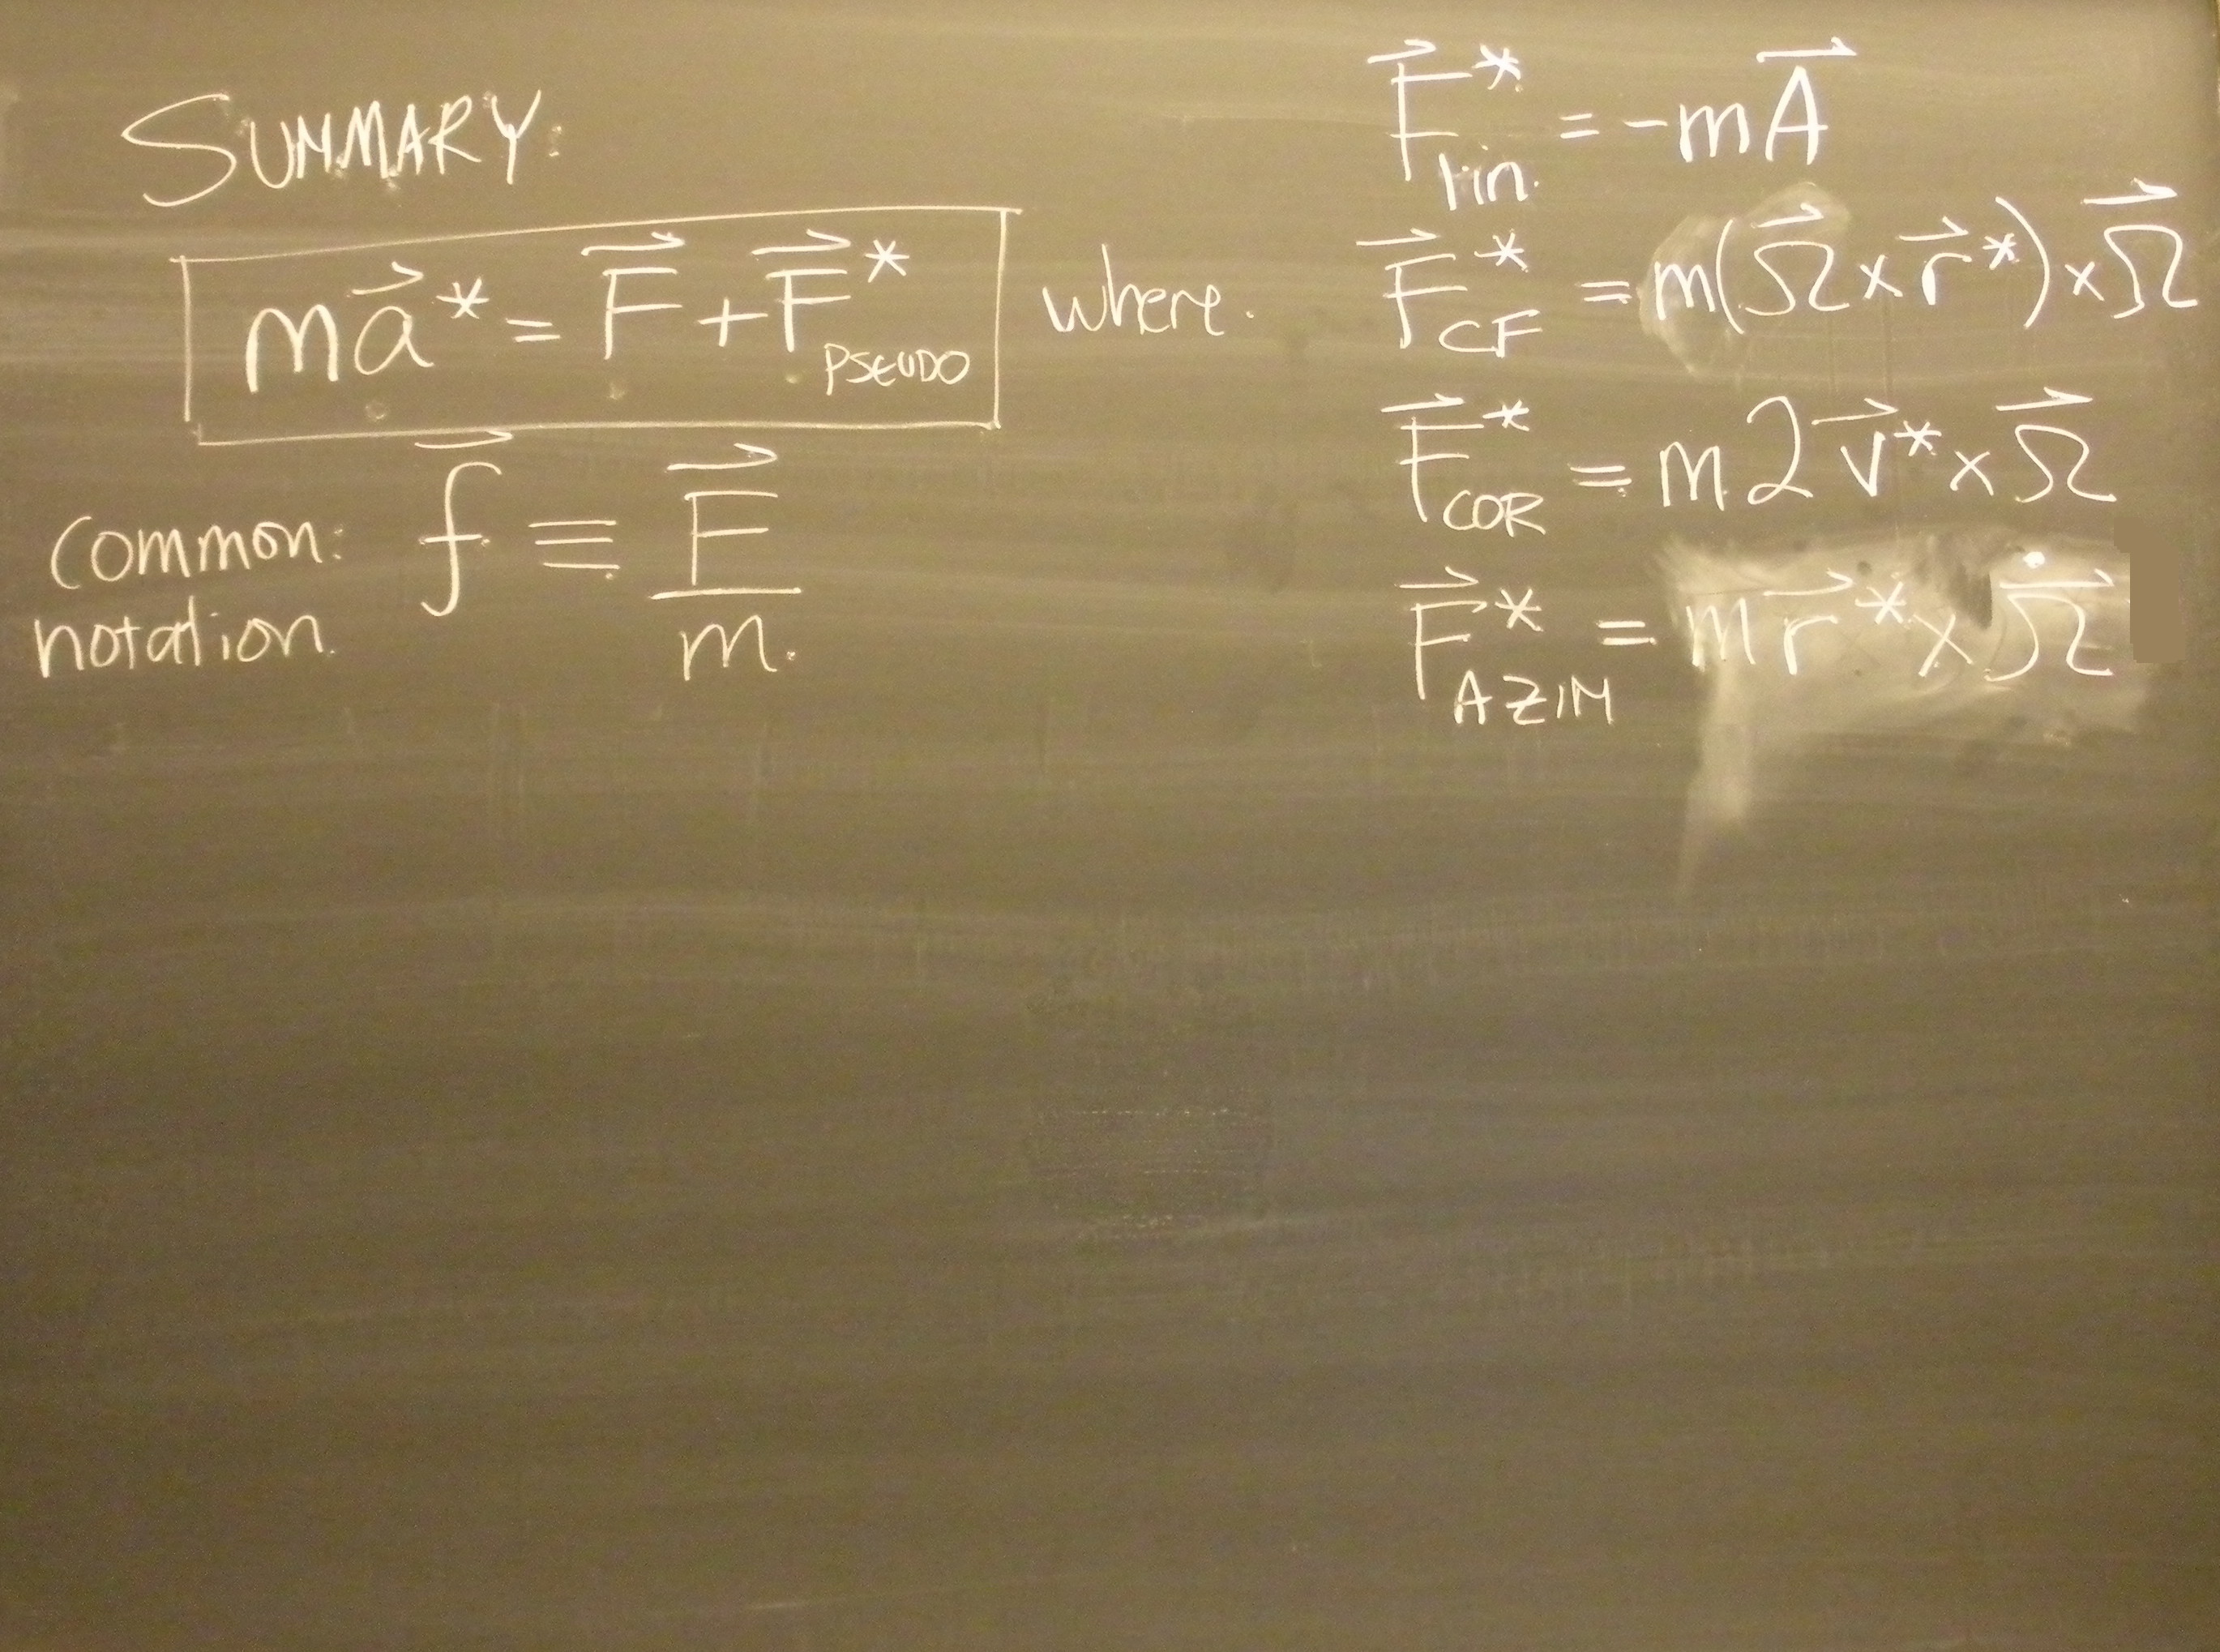 SUMMARY:
m\vec{a}* = \vec{F} + \vec{F}*_{PSEUDO} where.
common: \vec{f} ≡ \vec{F}/m.
notation.
\vec{F}*_{lin.} = -m\vec{A}
\vec{F}*_{CF} = m(\vec{Ω} × \vec{r}*) × \vec{Ω}
\vec{F}*_{COR} = m2\vec{v}* × \vec{Ω}
\vec{F}*_{AZIM} = m\vec{r}* × \dot{\vec{Ω}}